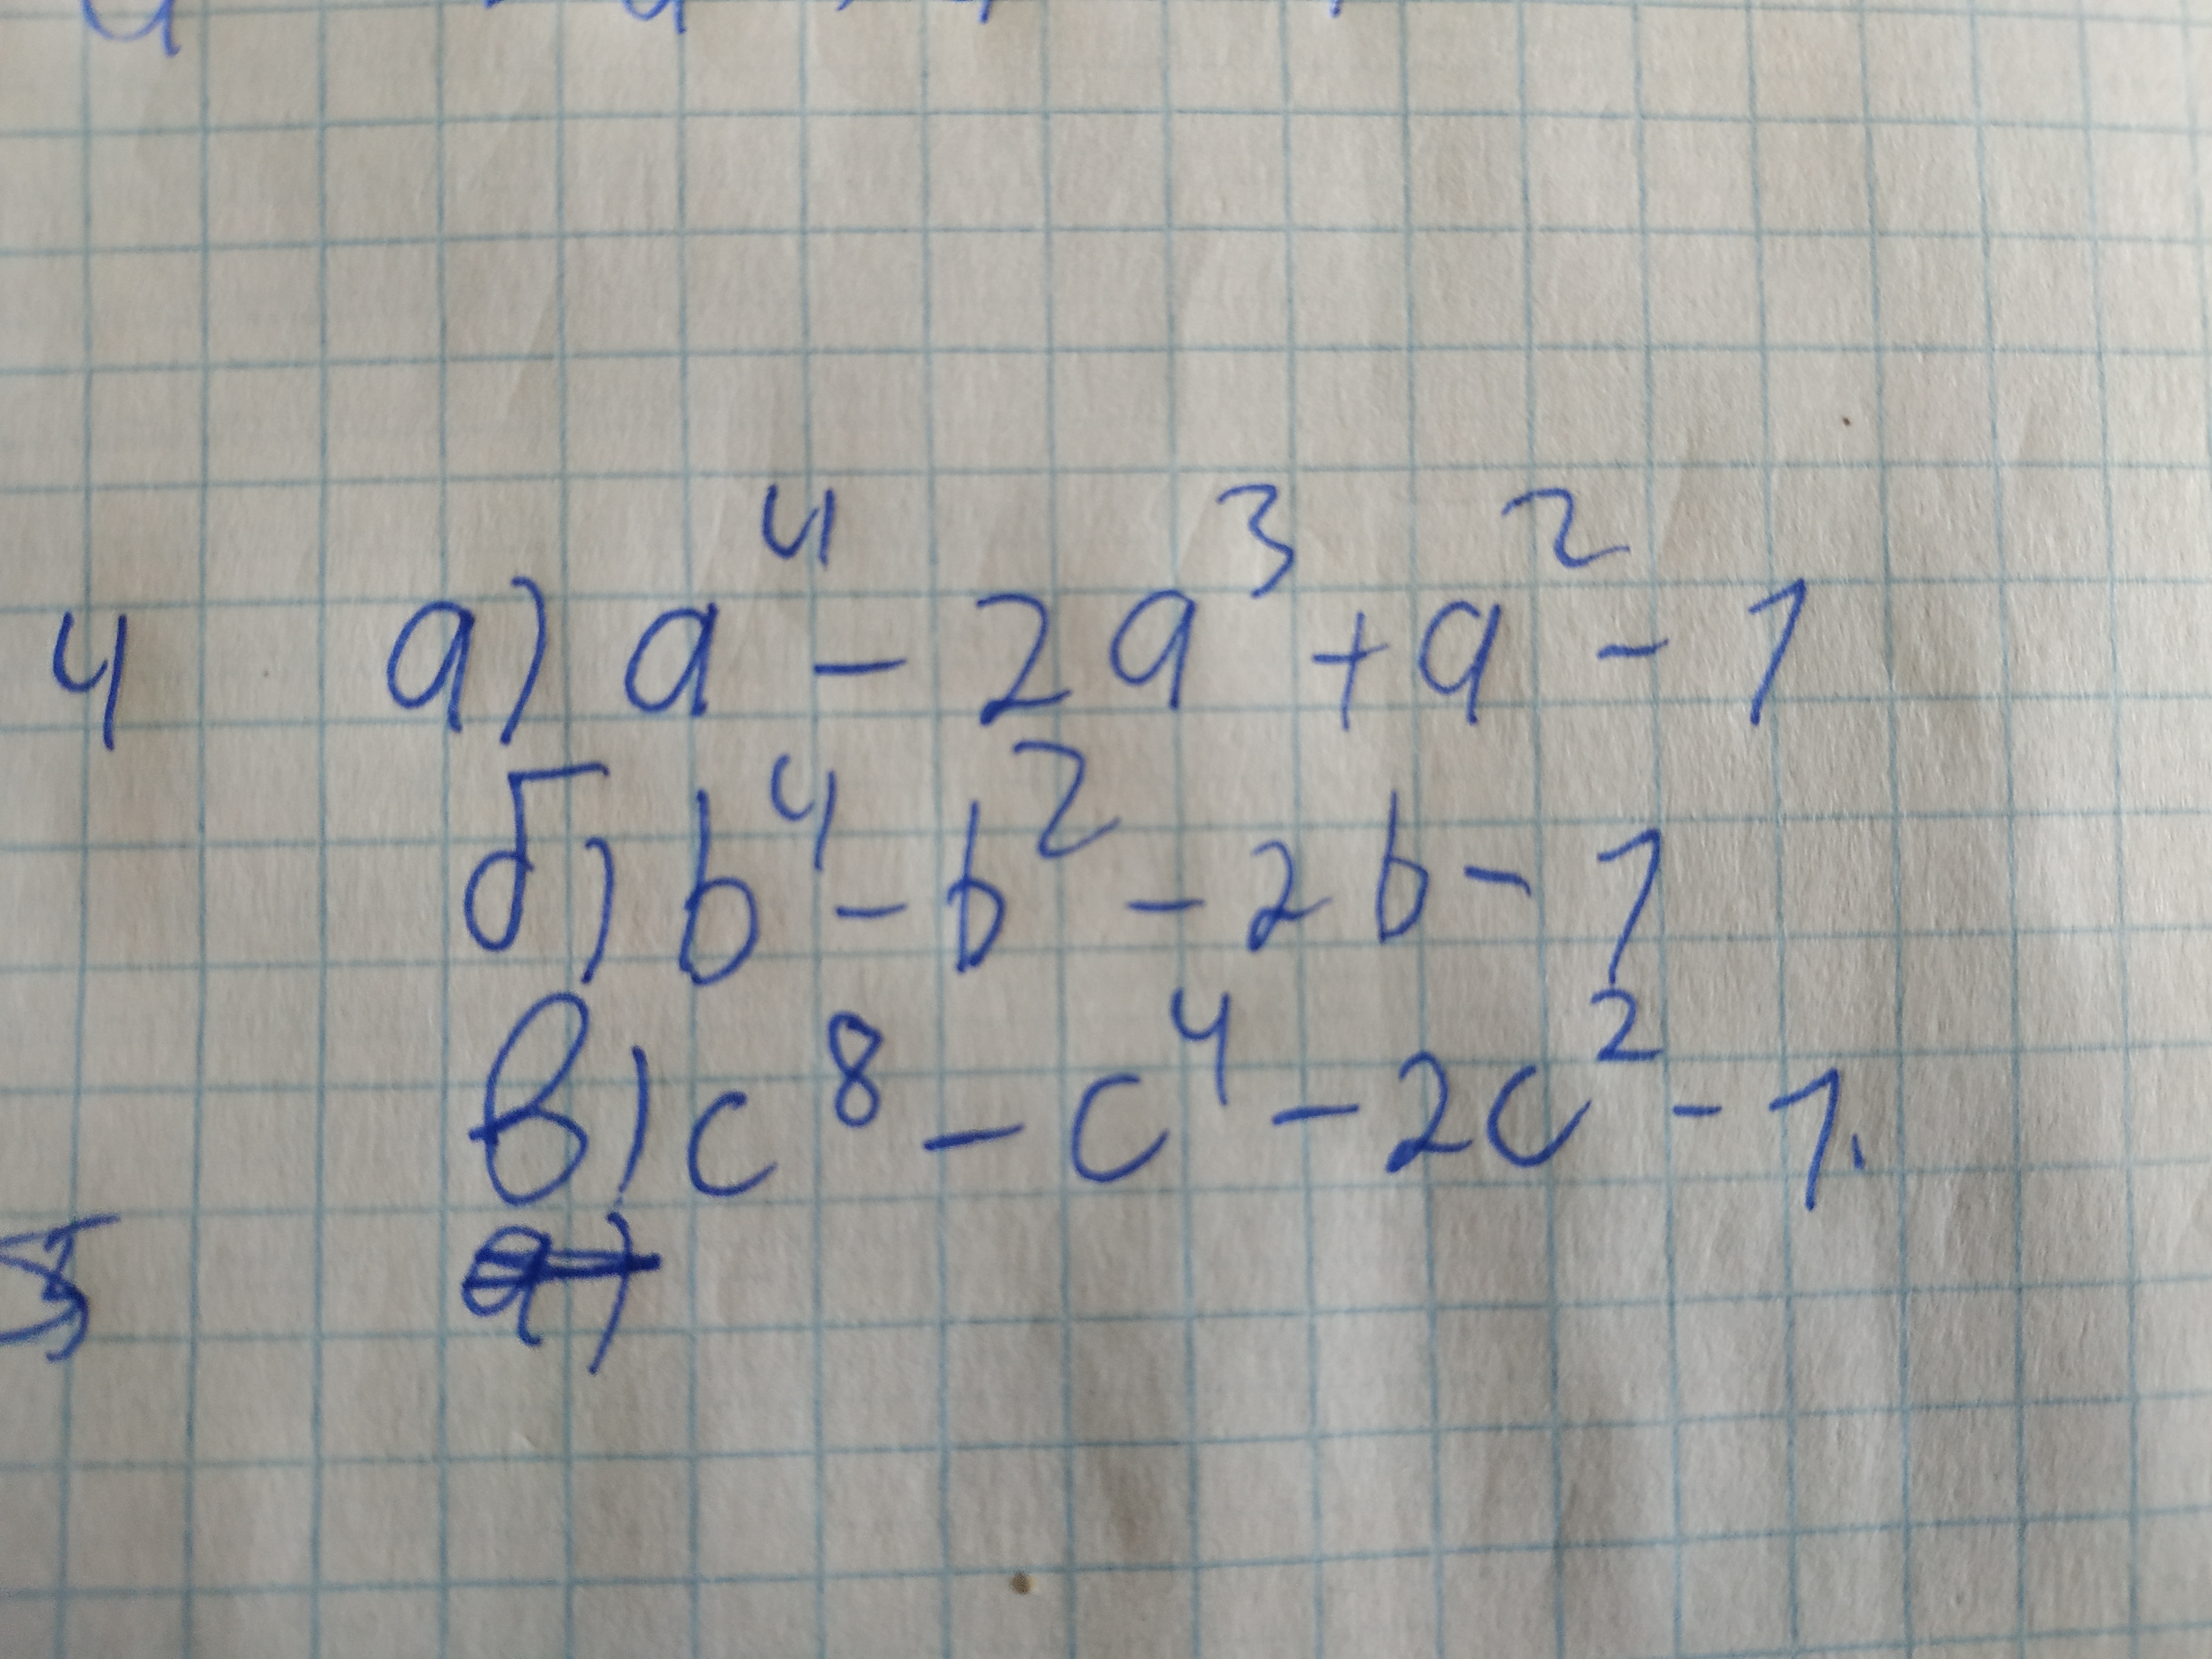 4 а) a⁴ - 2a³ + a² - 1
б) b⁴ - b² - 2b - 1
в) c⁸ - c⁴ - 2c² - 1.
5